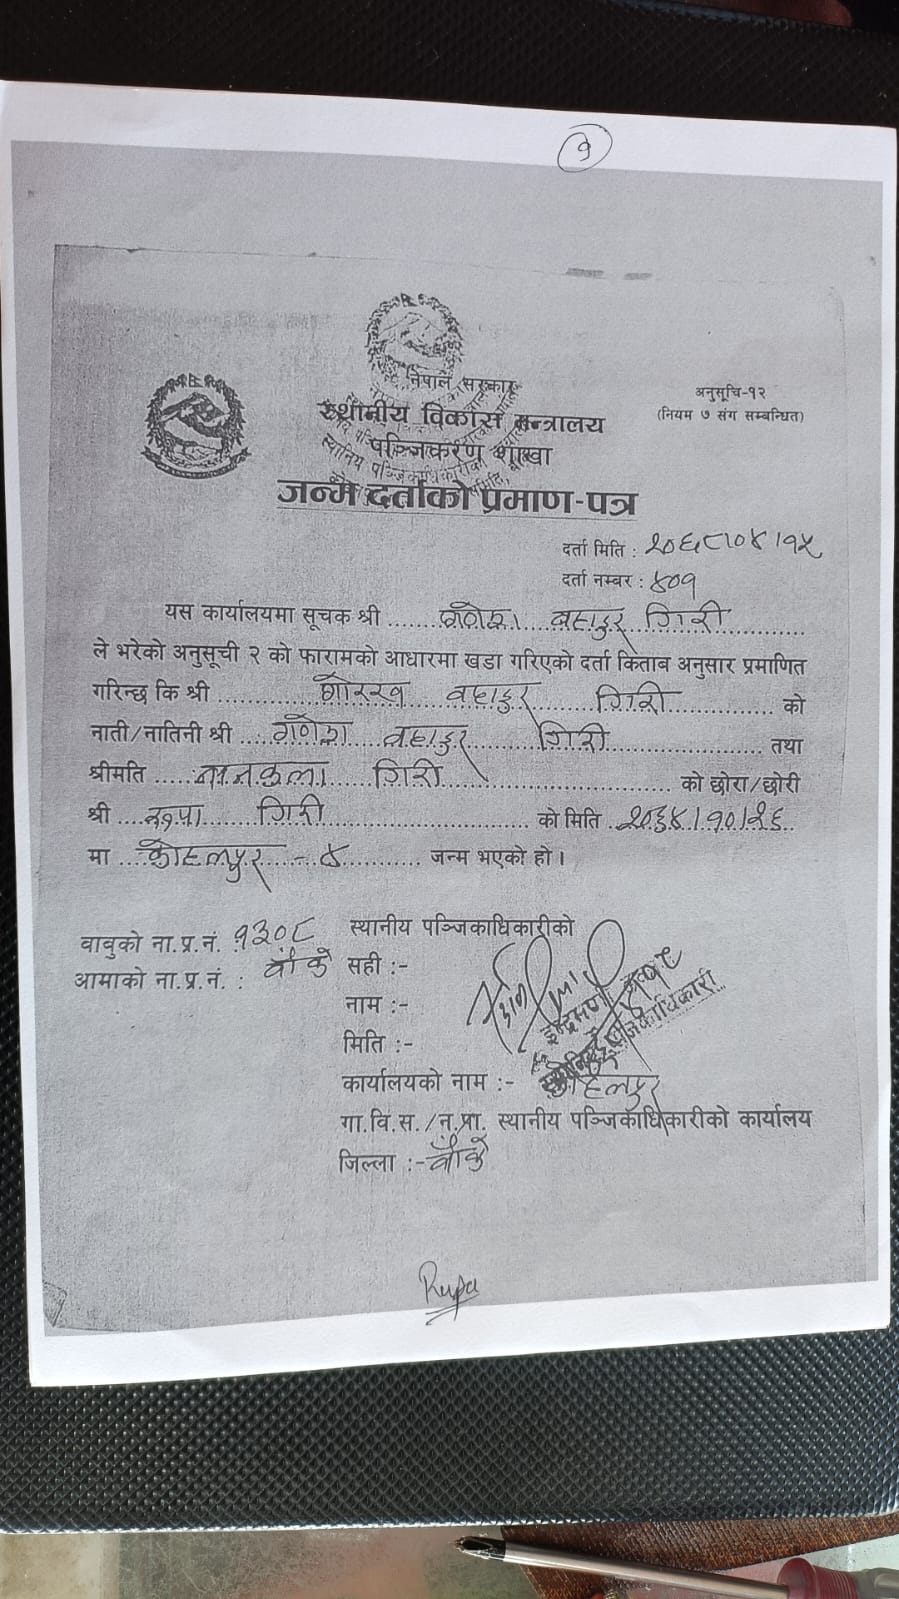 १
नेपाल सरकार
स्थानीय विकास मन्त्रालय
पञ्जिकरण शाखा
अनुसूचि-१२
(नियम ७ संग सम्बन्धित)
जन्म दर्ताको प्रमाण-पत्र
दर्ता मिति : २०६८।०४।१५
दर्ता नम्बर : ४०१
यस कार्यालयमा सूचक श्री गणेश बहादुर गिरी
ले भरेको अनुसूची २ को फारामको आधारमा खडा गरिएको दर्ता किताब अनुसार प्रमाणित
गरिन्छ कि श्री गोरख बहादुर गिरी को
नाती/नातिनी श्री गणेश बहादुर गिरी तथा
श्रीमति गिरी को छोरा/छोरी
श्री रुपा गिरी को मिति २०६४।१०।२६
मा कोहलपुर - ४ जन्म भएको हो।
बाबुको ना.प्र.नं. १३०८
आमाको ना.प्र.नं. : बाँके
स्थानीय पञ्जिकाधिकारीको
सही :-
नाम :-
मिति :-
कार्यालयको नाम :- कोहलपुर
गा.वि.स./न.प्रा. स्थानीय पञ्जिकाधिकारीको कार्यालय
जिल्ला :- बाँके
Rupa